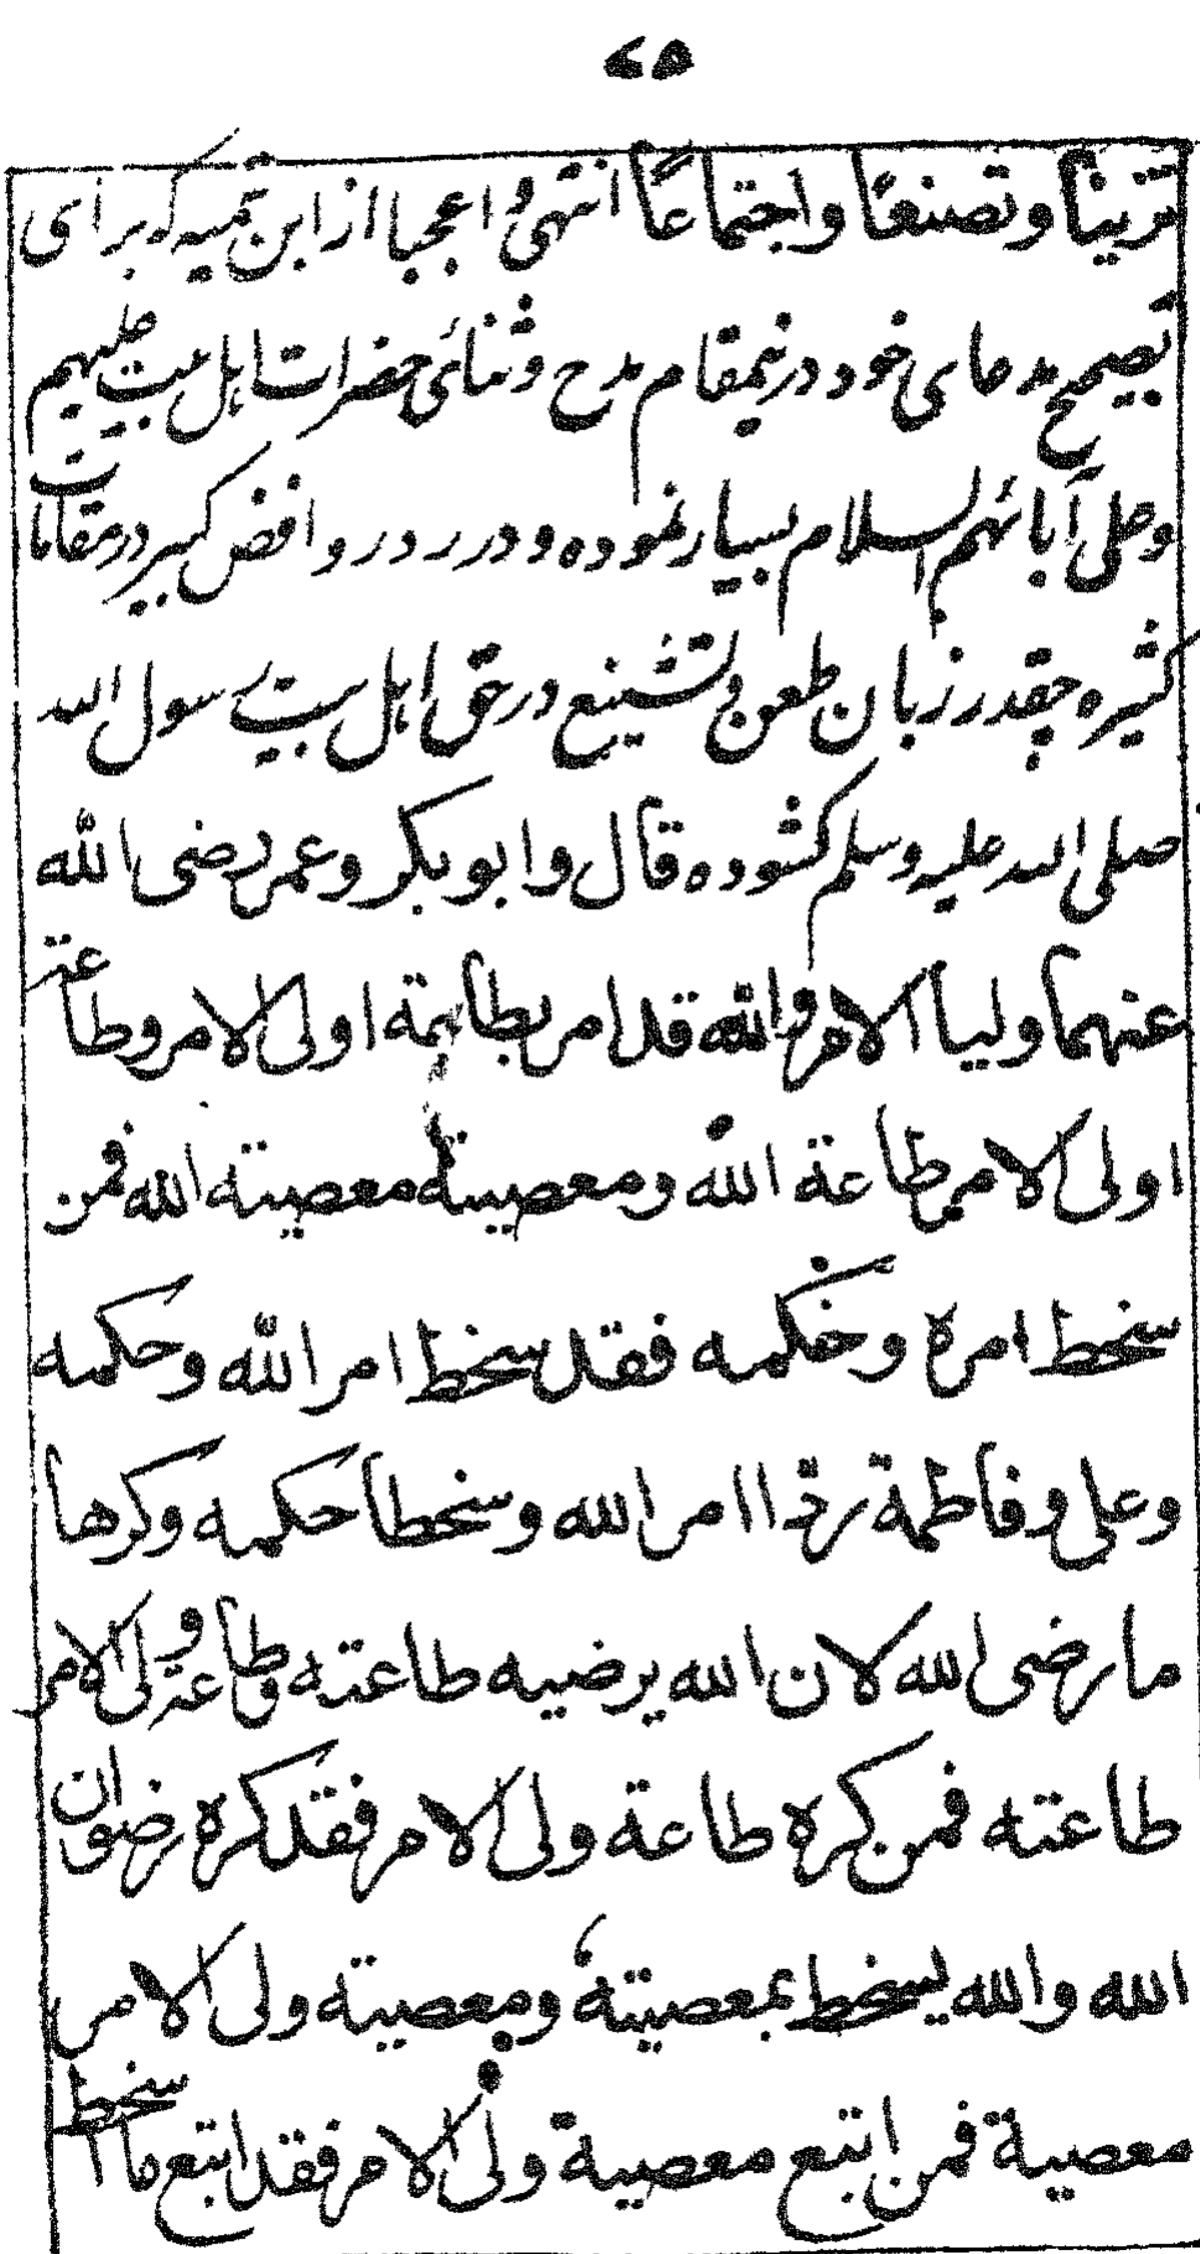 ٧٥
تزيينا وتصنعًا واجتماعًا انتهى و اعجبا از ابن تيميه كه براى
تصحيح مدعاى خود درينمقام مدح و ثنائى حضرات اهل بيت عليهم
وعلى آبائهم السلام بسيار نموده و در رد روافض كبير در مقامات
كثيره چقدر زبان طعن و تشنيع در حق اهل بيت رسول الله
صلى الله عليه وسلم كشوده قال وابو بكر وعمر رضى الله
عنهما وليا الامر والله قد امر بطاعة اولى الامر وطاعته
اولى الامر طاعة الله ومعصيته معصيته الله فمن
سخط امره وحكمه فقد سخط امر الله وحكمه
وعلى وفاطمة ردا امر الله وسخطا حكمه وكرها
ما رضى الله لان الله يرضيه طاعته وطاعة ولى الامر
طاعته فمن كره طاعة ولى الامر فقد كره رضوان
الله والله يسخط بمعصيته ومعصيته ولى الامر
معصية فمن اتبع معصية ولى الامر فقد اتبع ما اسخط